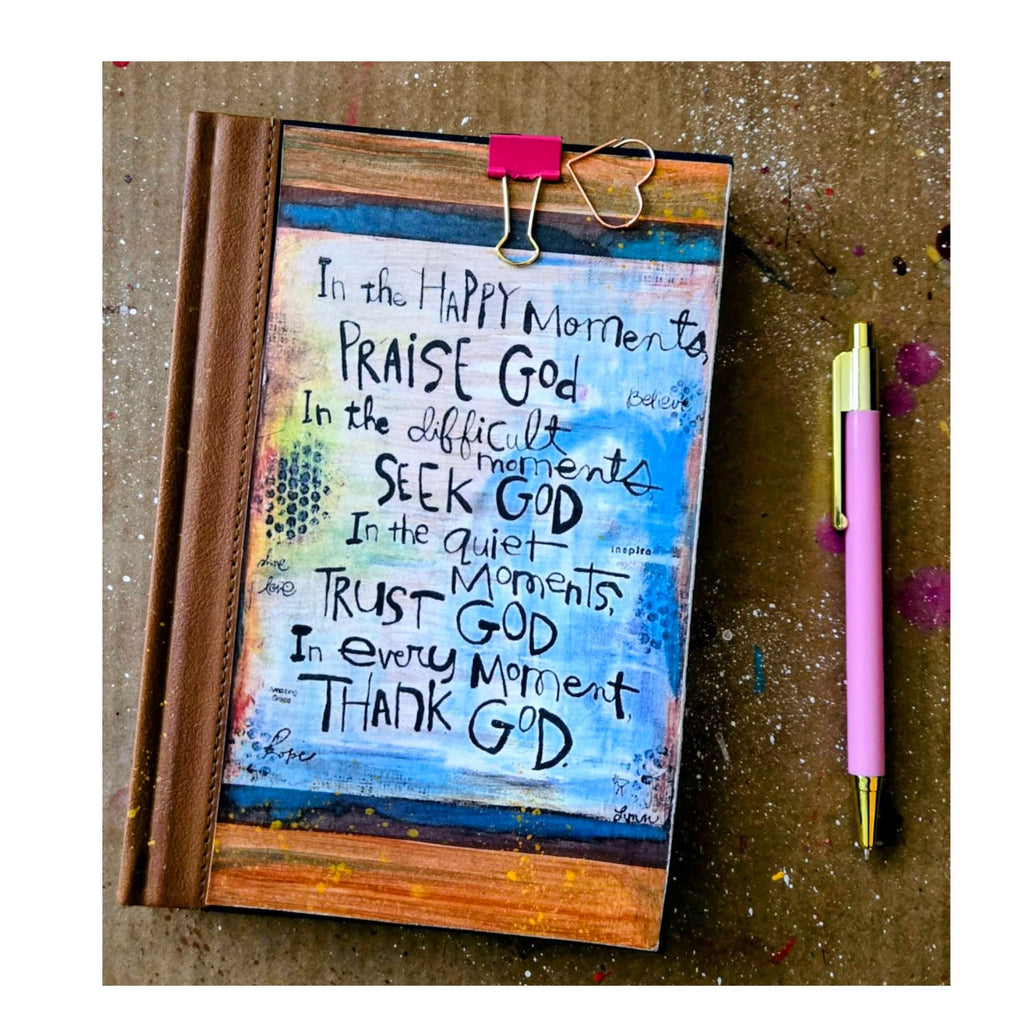 In the HAPPY Moments,
PRAISE GOd
Believe
In the difficult
moments,
SEEK GOD
In the quiet
inspire
Moments,
shine
love
TRUST GOD
In every Moment,
THANK GOD.
amazing
Grace
Hope
Lynn